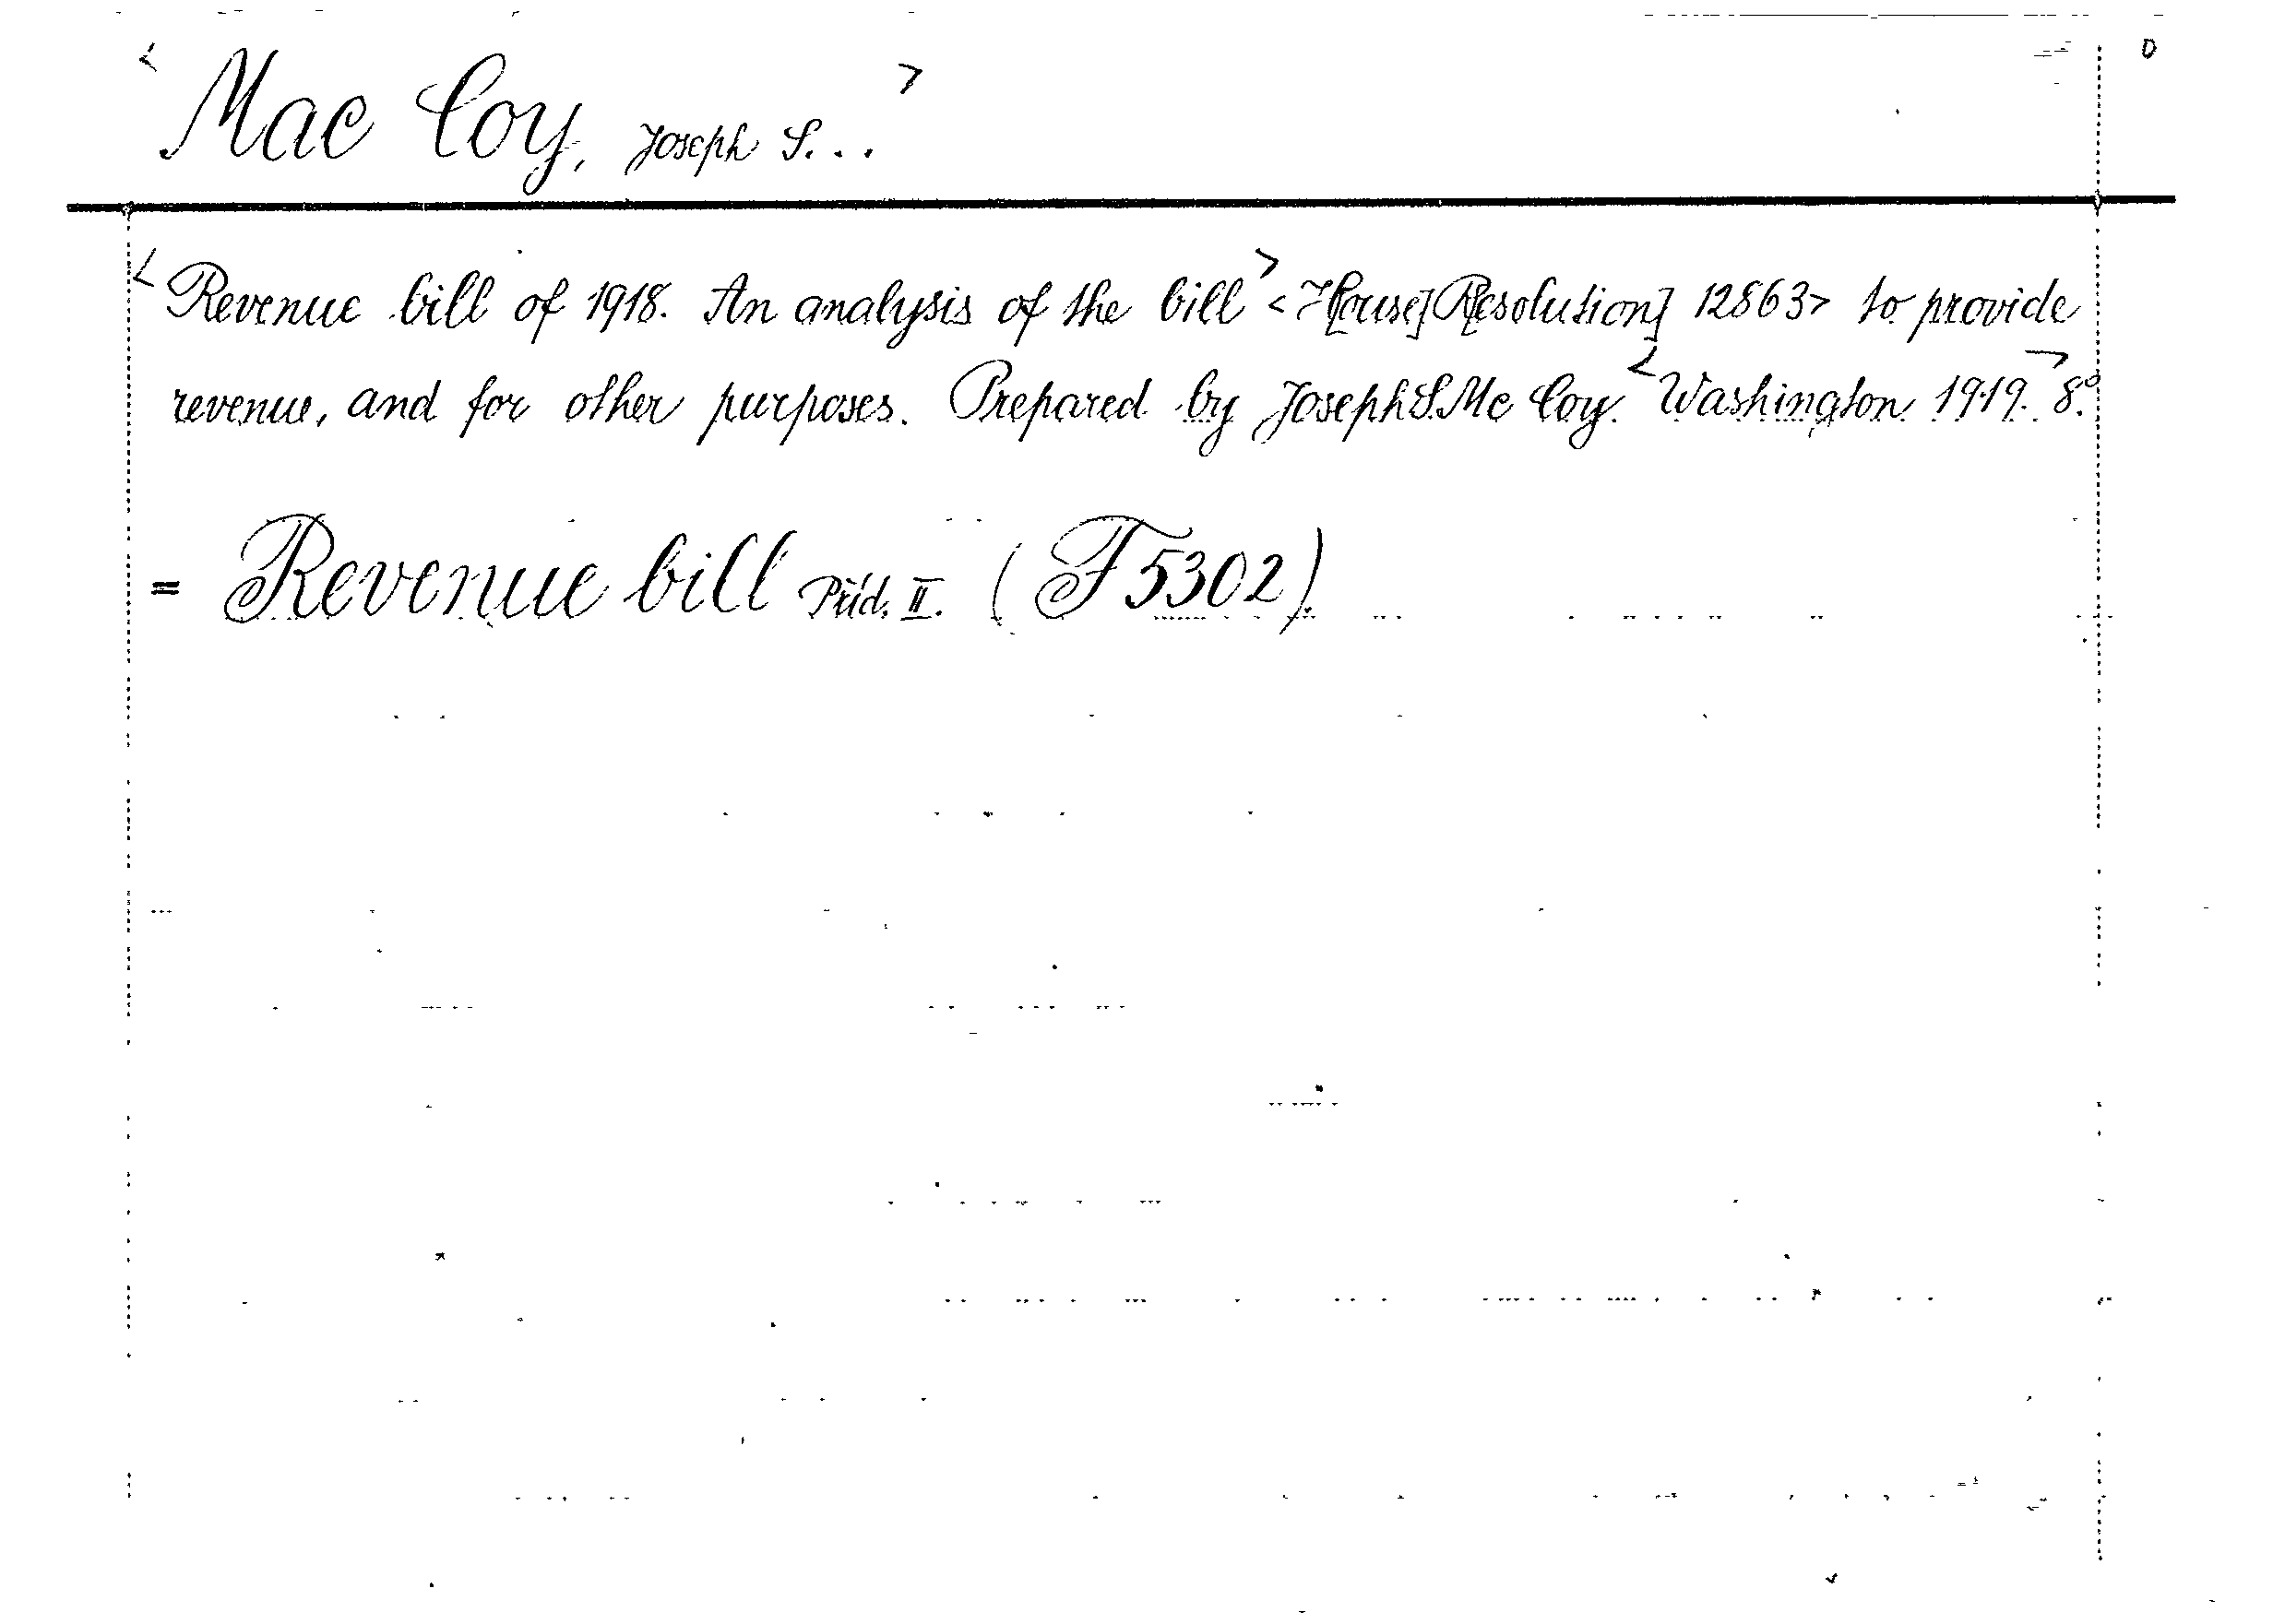 <Mac Coy, Joseph S...>
<Revenue bill of 1918. An analysis of the bill> <H[ouse] R[esolution] 12863> to provide
revenue, and for other purposes. Prepared by Joseph S. Mc Coy. <Washington 1919.> 8°.
= Revenue bill Präd. II. (F 5302).